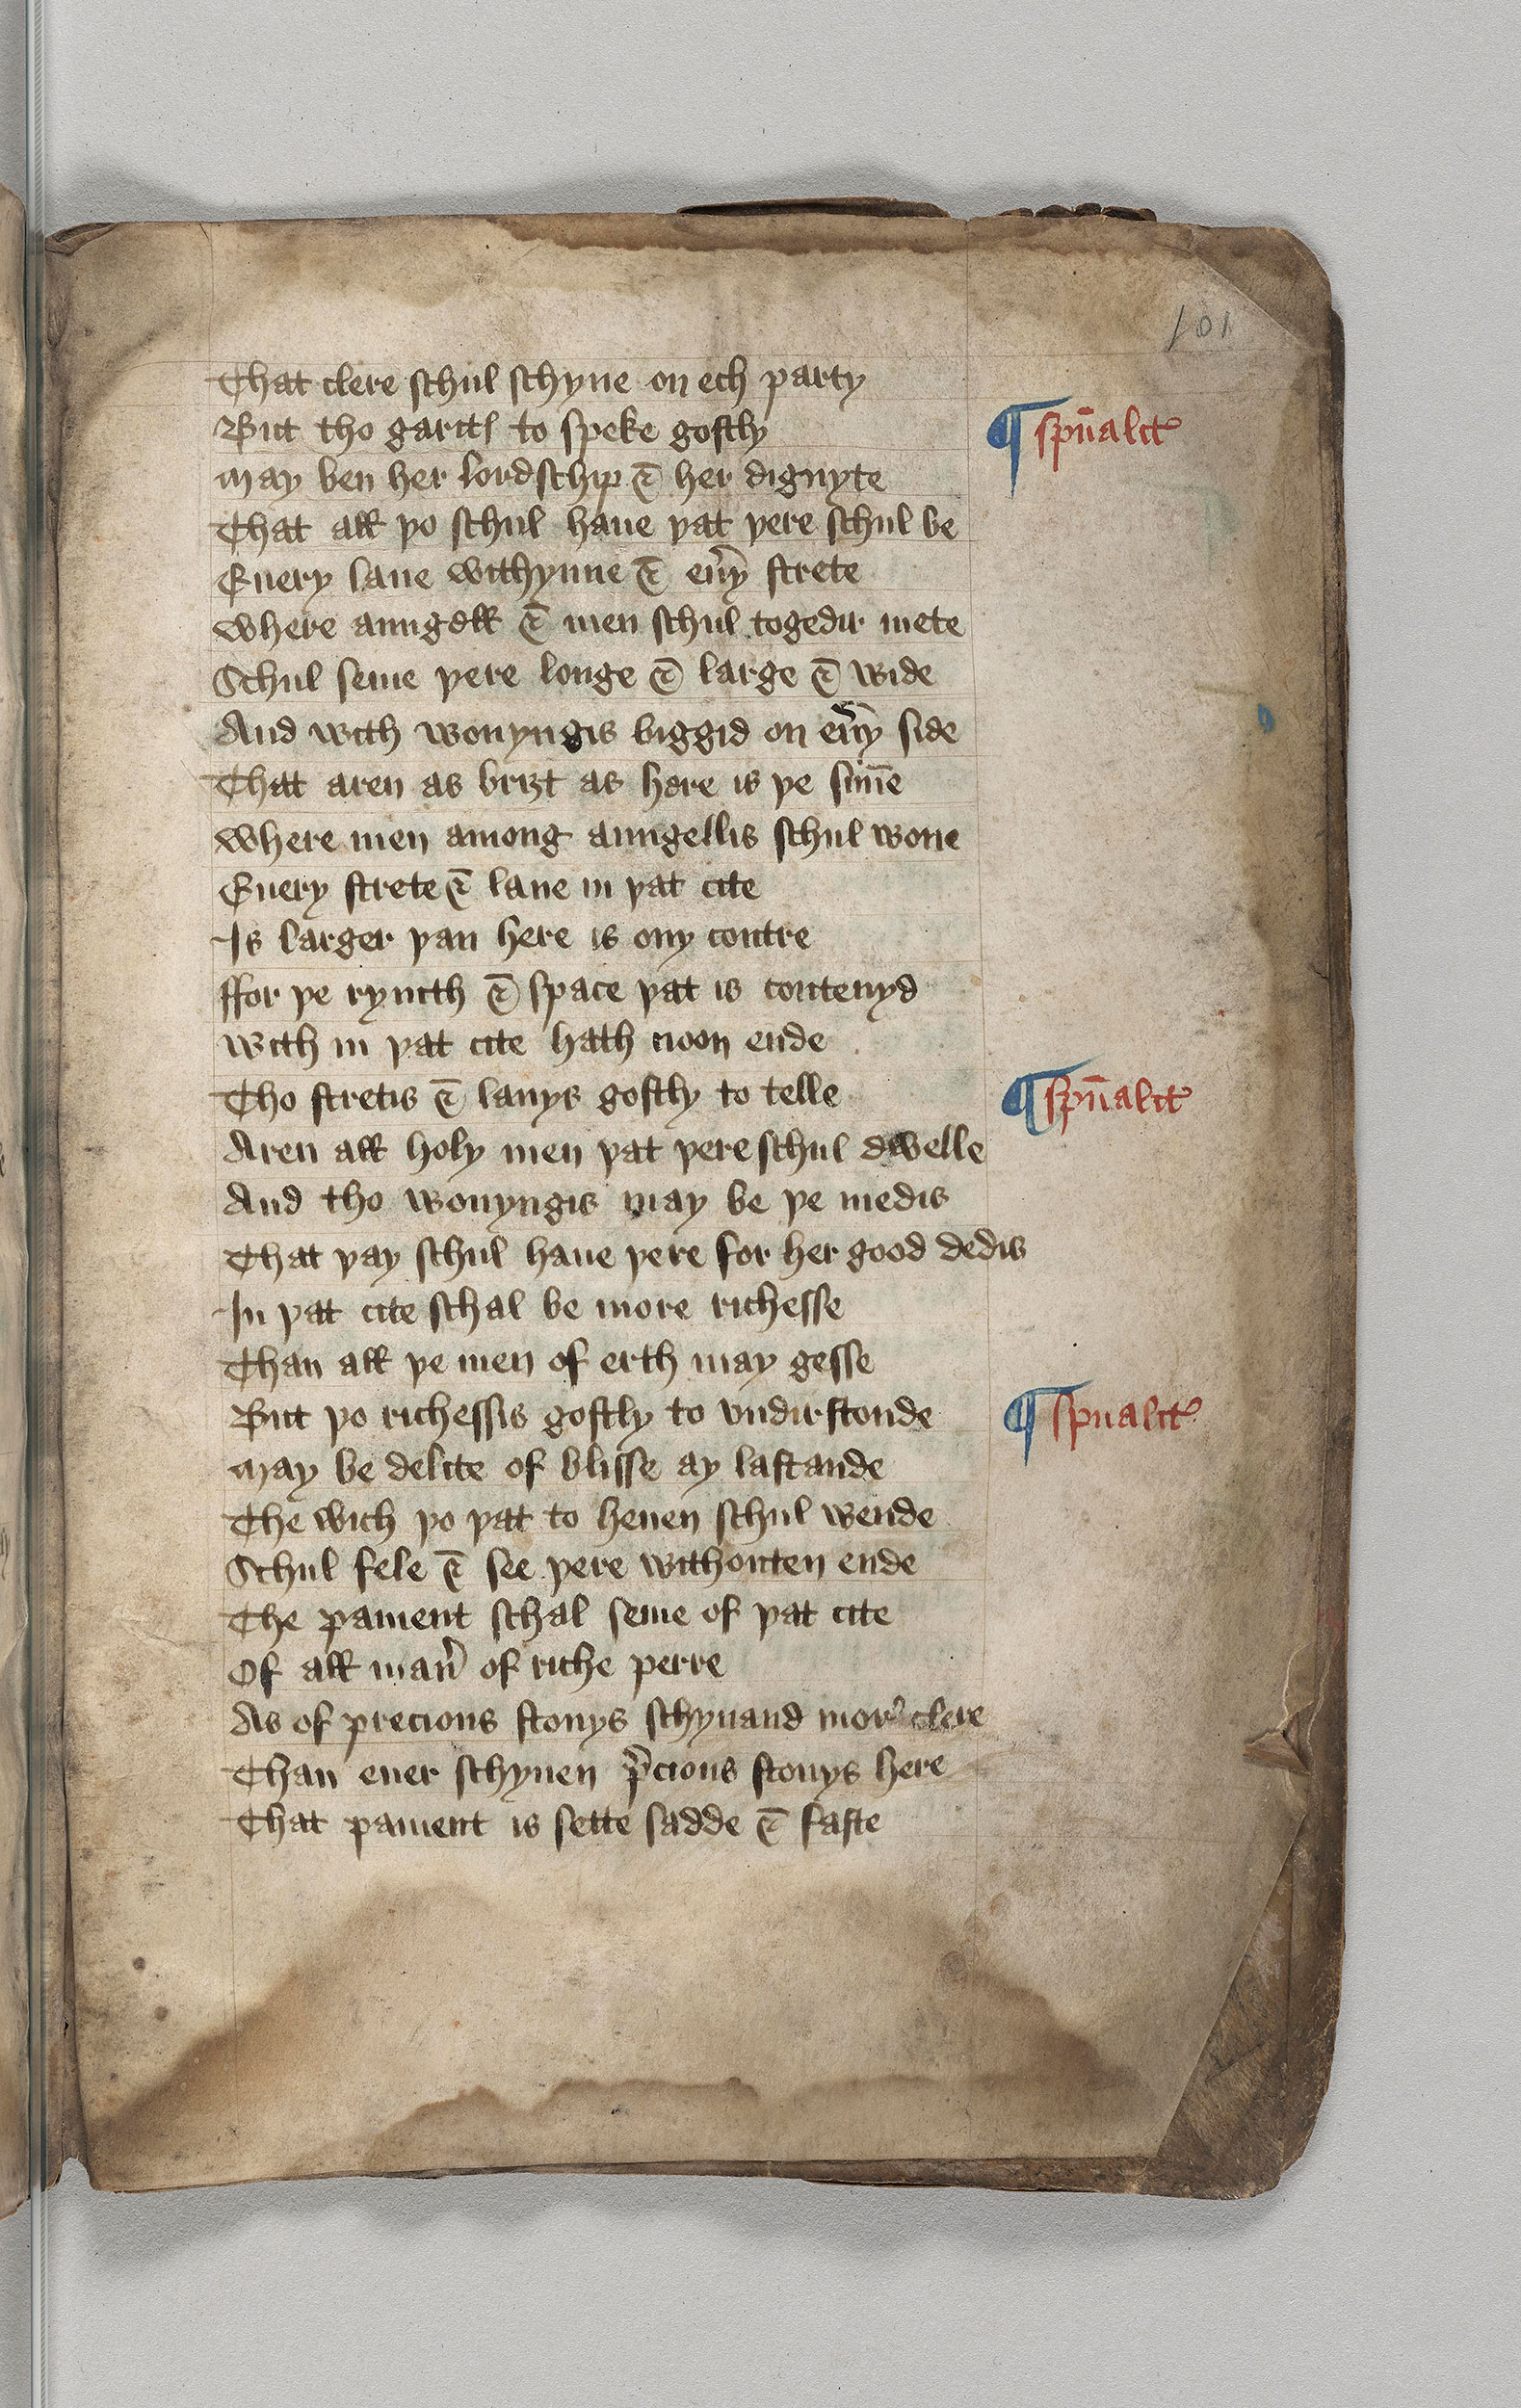 101
That clere schul schyne on ech party
But tho garitꝭ to speke gostly
¶ spūalit̛
May ben her lordschip ⁊ her dignyte
That aƚƚ þo schul haue þat þere schul be
Euery lane withynne ⁊ eu̾y strete
Where aungeƚƚ ⁊ men schul togedir mete
Schul seme þere longe ⁊ large ⁊ wide
And with wonyngis biggid on eu̾y side
That aren as briȝt as here is þe sun̄e
Where men among aungellis schul wone
Euery strete ⁊ lane in þat cite
Is larger þan here is ony contre
ffor þe rymth ⁊ space þat is contenyd
With in þat cite hath noon ende
Tho stretis ⁊ lanys gostly to telle
¶ spūalit̛
Aren aƚƚ holy men þat þere schul dwelle
And tho wonyngis may be þe medis
That þay schul haue þere for her good dedis
In þat cite schal be more richesse
Than aƚƚ þe men of erth may gesse
But þo richessis gostly to vndirstonde
¶ spualit̛
May be delite of blisse ay lastande
The wich þo þat to heuen schul wende
Schul fele ⁊ see þere withouten ende
The pament schal seme of þat cite
Of aƚƚ man̾ of riche perre
As of precious stonys schynand mor̾ clere
Than euer schynen p̾cious stonys here
That pament is sette sadde ⁊ faste